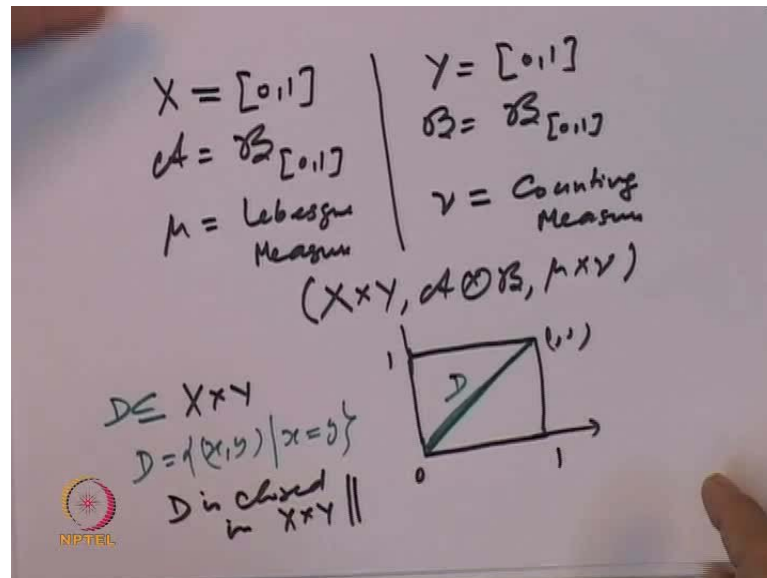 X = [0,1]
𝒜 = ℬ[0,1]
μ = Lebesgue
Measure
Y = [0,1]
ℬ = ℬ[0,1]
ν = Counting
Measure
(X×Y, 𝒜⊗ℬ, μ×ν)
D⊆ X×Y
D={(x,y)|x=y}
D is closed
in X×Y ||
1
(1,1)
D
0
1
NPTEL